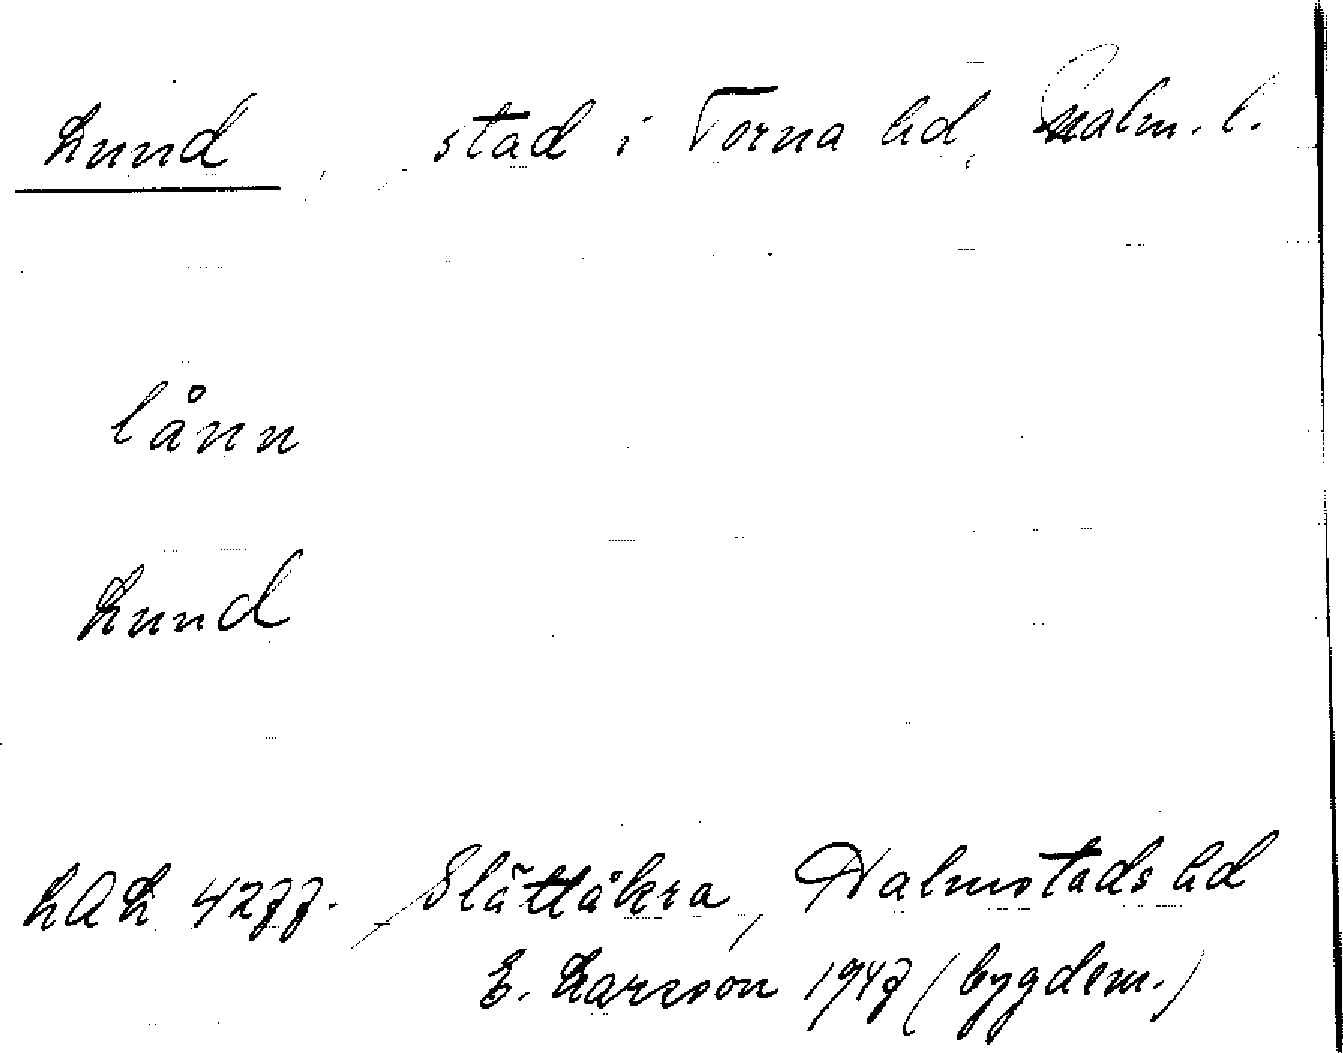 Lund, stad i Torna hd, Malm. l.
lånn
Lund
LAL 4277. Slättåkra, Halmstads hd
E. Larsson 1947 (bygdem.)